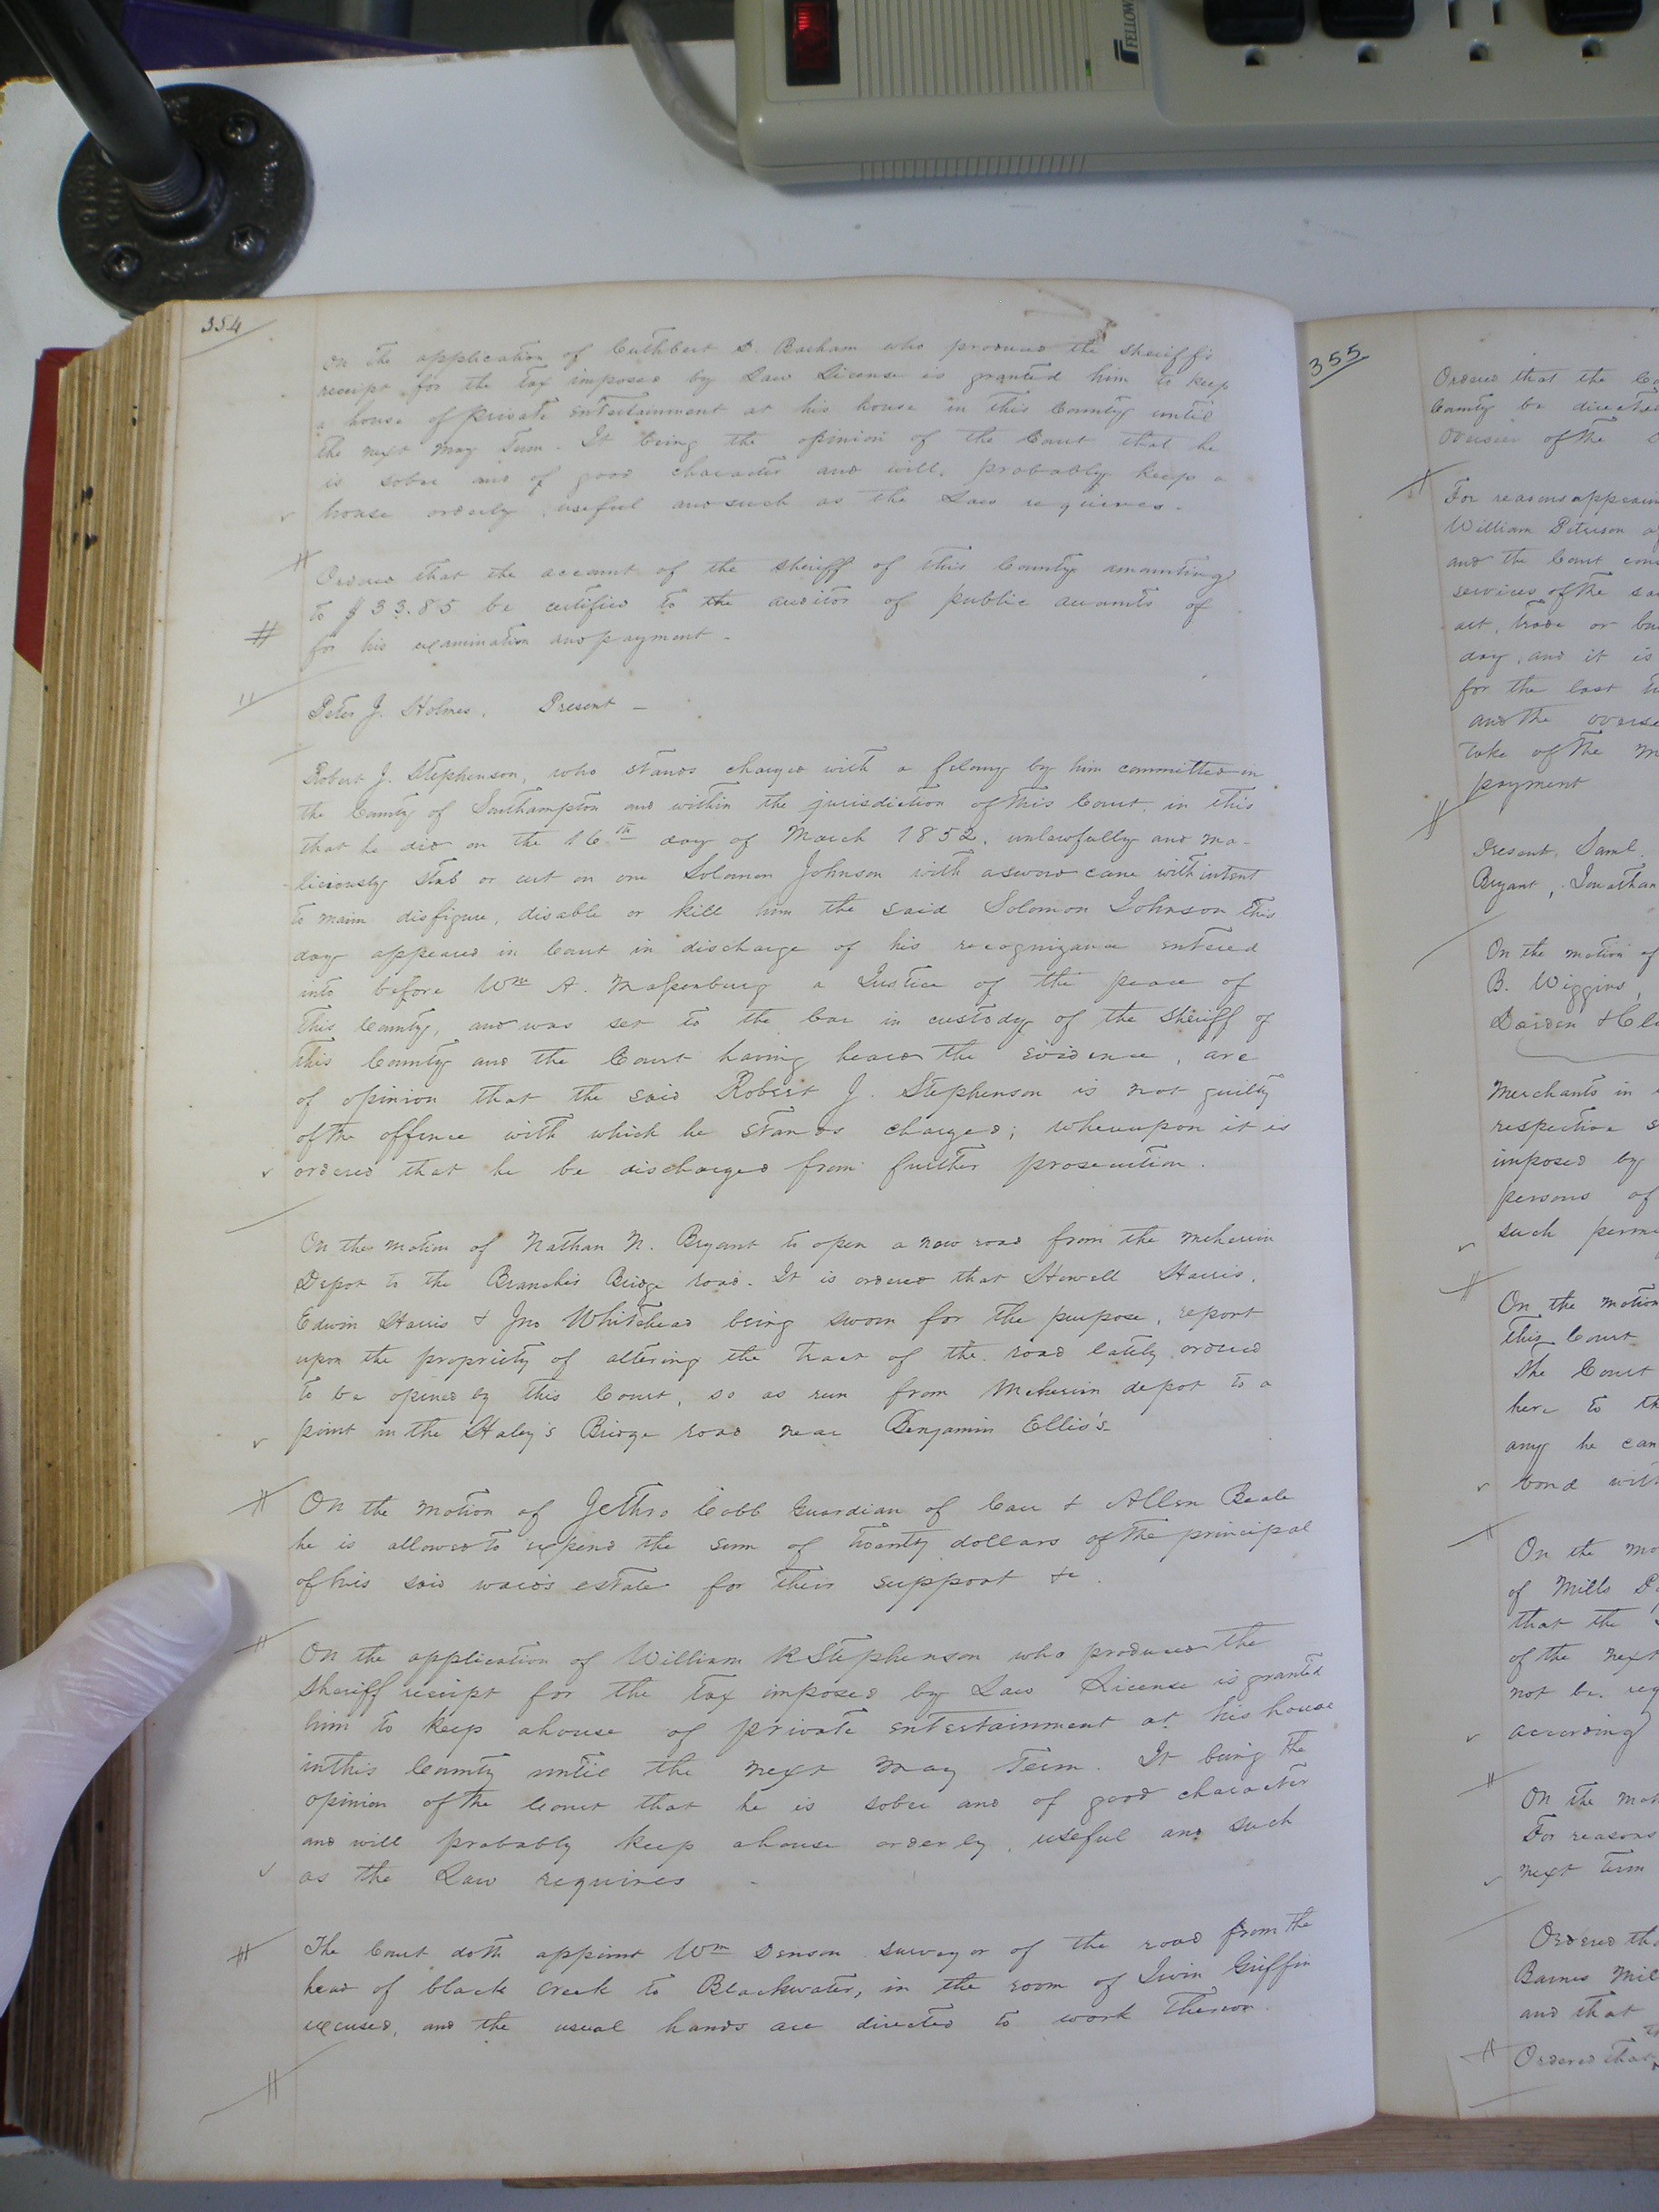 354
On the application of Cuthbert D. Barham who produced the Sheriff's
receipt for the tax imposed by Law License is granted him to keep
a house of private entertainment at his house in this County until
the next May Term. It being the opinion of the Court that he
is sober and of good character and will, probably keep a
house orderly useful and such as the Law requires.
Ordered that the account of the Sheriff of this County amounting
to $33.85 be certified to the auditor of public accounts of
for his examination and payment -
Peter J. Holmes, Present -
Robert J. Stephenson, who stands charged with a felony by him committed in
the County of Southampton and within the jurisdiction of this Court, in this
that he did on the 16th day of March 1852, unlawfully and ma-
-liciously stab or cut on one Solomon Johnson with a sword cane with intent
to maim disfigure, disable or kill him the said Solomon Johnson this
day appeared in Court in discharge of his recognizance entered
into before Wm A. Massenburg a Justice of the peace of
this County, and was set to the bar in custody of the Sheriff of
this County and the Court having heard the evidence, are
of opinion that the said Robert J. Stephenson is not guilty
of the offence with which he stands charged; whereupon it is
ordered that he be discharged from further prosecution.
On the motion of Nathan N. Bryant to open a new road from the meherrin
Depot to the Branch's Bridge road. It is ordered that Howell Harris,
Edwin Harris & Jno Whitehead being sworn for the purpose, report
upon the propriety of altering the tract of the road lately ordered
to be opened by this Court, so as run from Meherrin depot to a
point in the Haley's Bridge road near Benjamin Ellis's
On the motion of Jethro Cobb Guardian of & Allen Beale
he is allowed to expend the sum of twenty dollars of the principal
of his said ward's estate for their support &c.
On the application of William R Stephenson who produced the
Sheriff receipt for the tax imposed by Law License is granted
him to keep a house of private entertainment at his house
in this County until the next May Term. It being the
opinion of the Court that he is sober and of good character
and will probably keep a house orderly, useful and such
as the Law requires -
The Court doth appoint Wm Denson surveyor of the road from the
head of black Creek to Blackwater, in the room of Irvin Griffin
excused, and the usual hands are directed to work thereon.
355
Ordered that the
County be directed
of the
For reasons appear
William Peterson
and the Court
services of the
art, trade or bu
day, and it is
for the last
and the overse
take of the
payment
Present, Saml.
Bryant, Jonathan
On the motion of
B. Wiggins,
Darden & Cl
Merchants in
respective
imposed by
persons of
such perm
On the motion
this Court
The Court
here to th
any he can
bond with
On the mo
of Mills
that the
of the next
not be. req
according
On the mot
For reasons
next term
Ordered th
Barnes Mil
and that
Ordered that
FELLOW